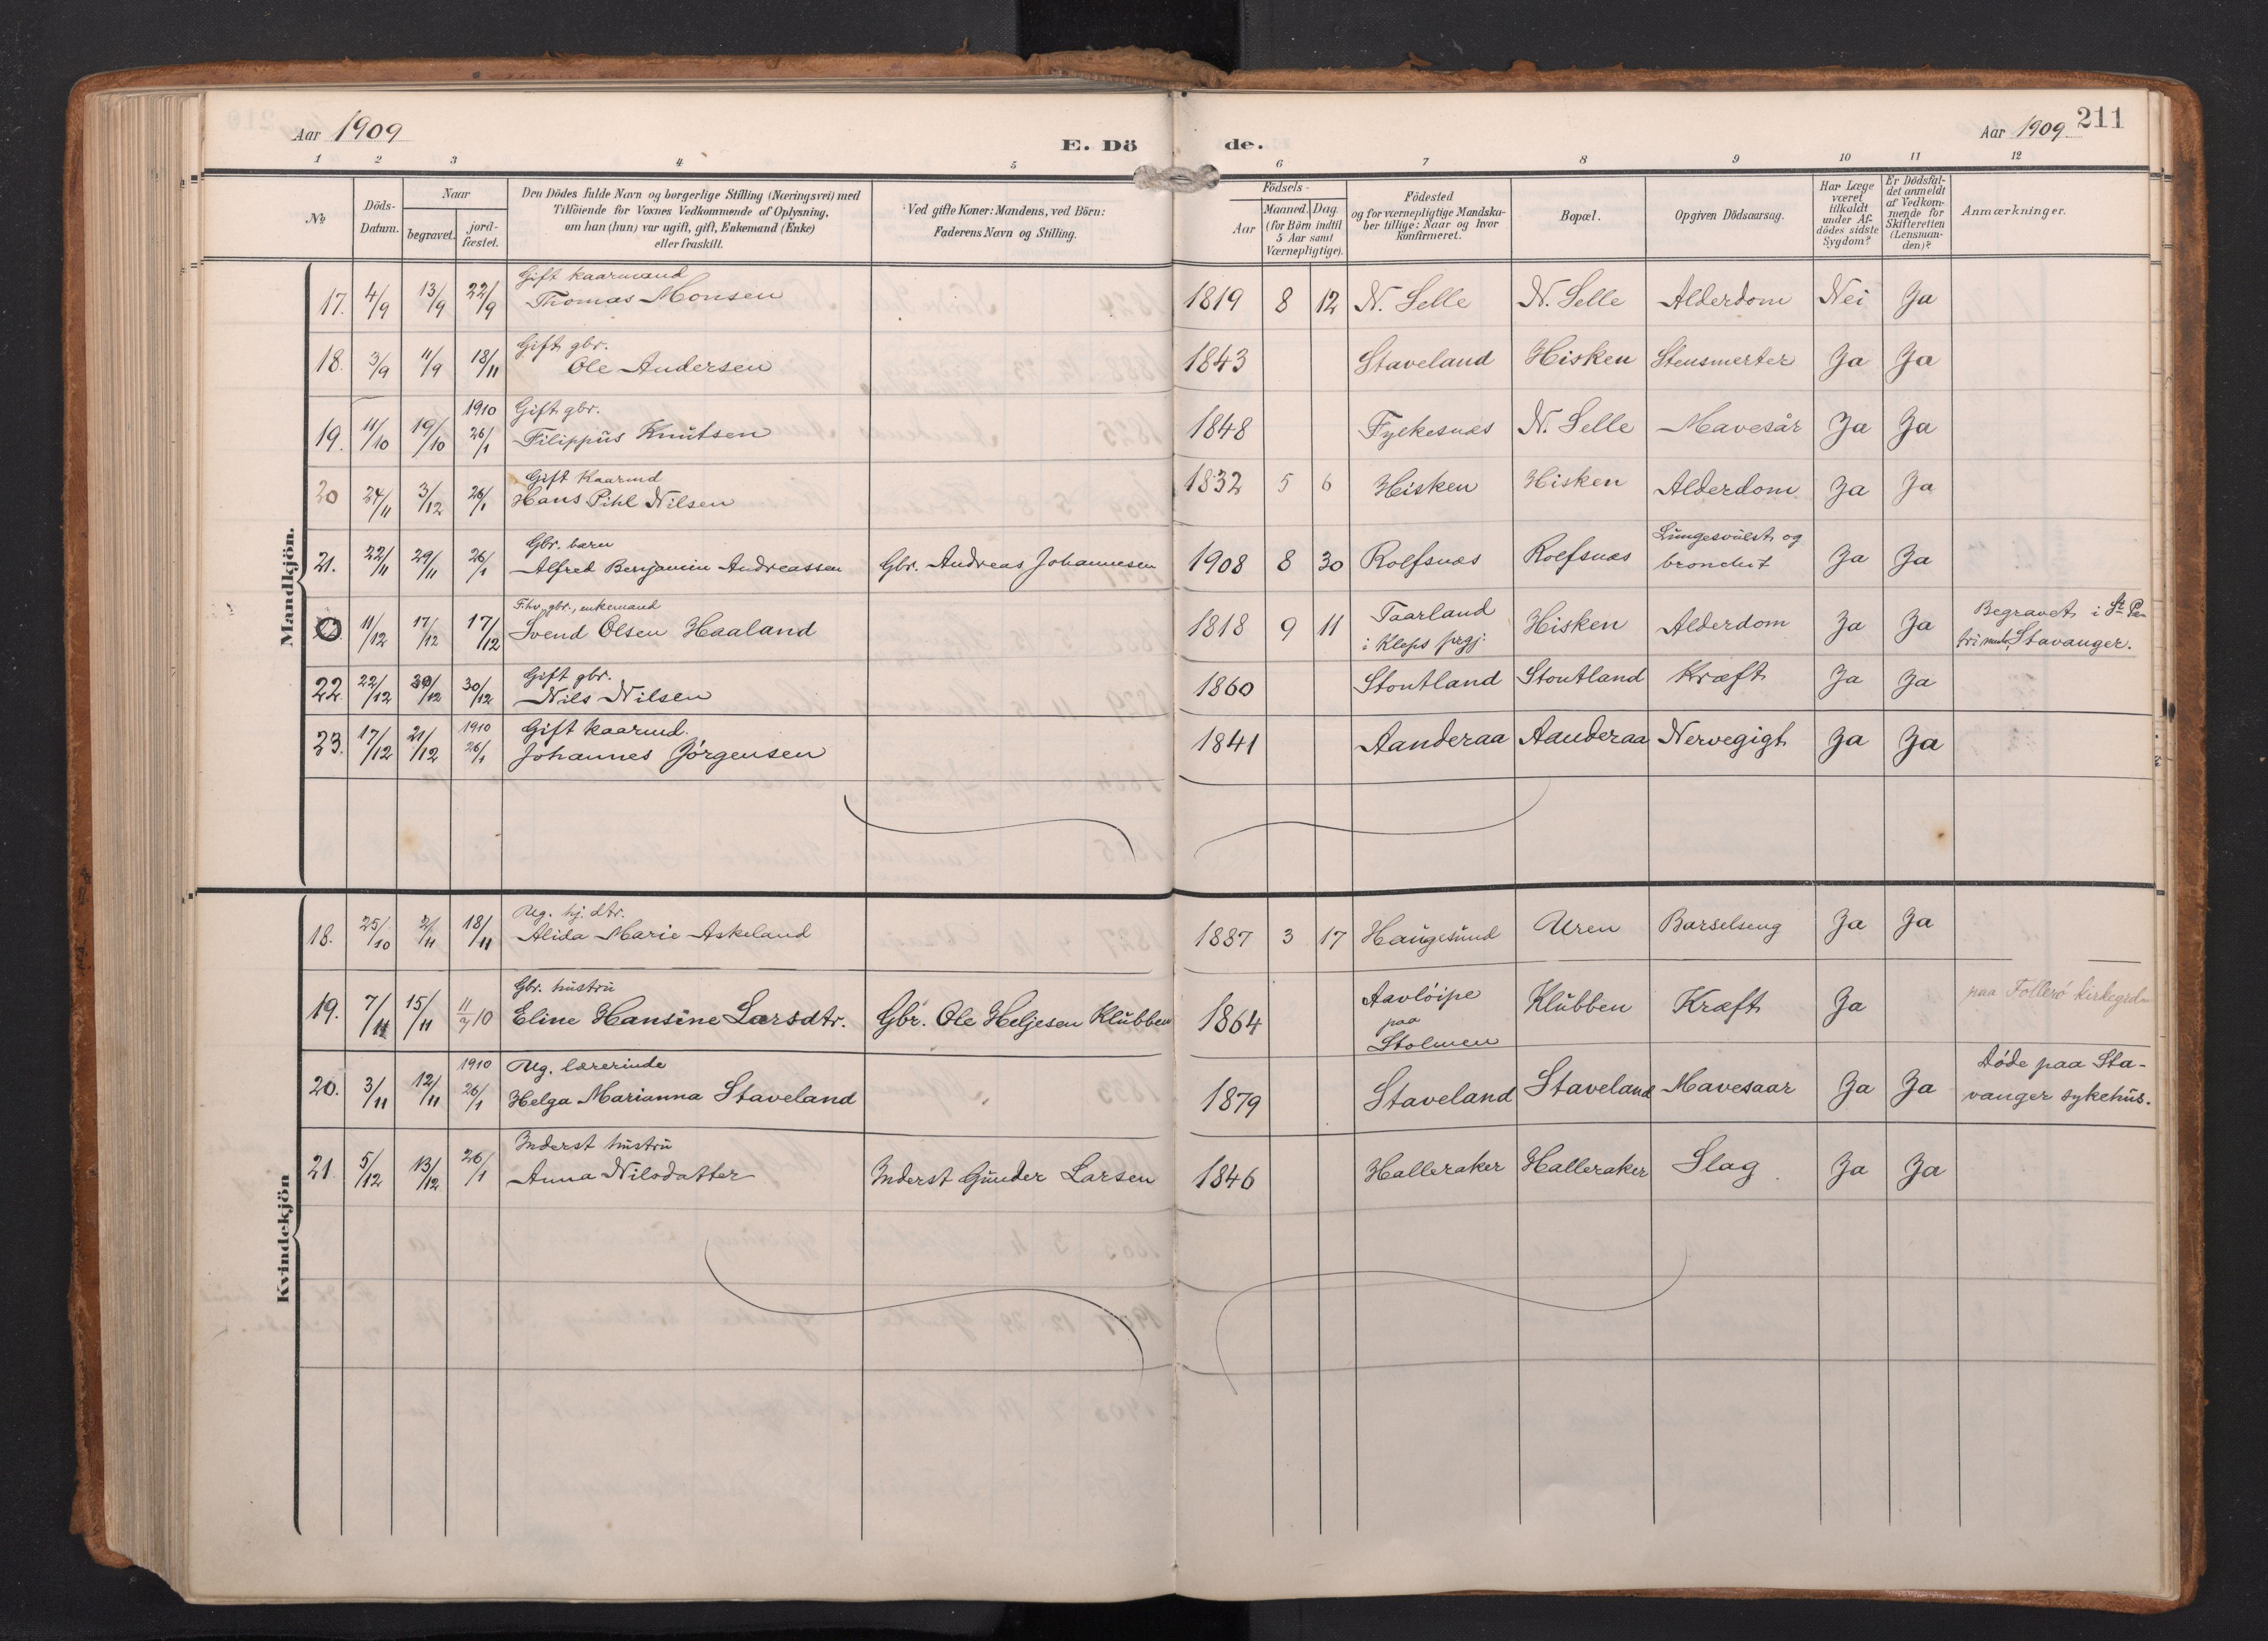 Aar 1909
E. Dö
de.
Aar 1909 211
1 2 3 4 5 6 7 8 9 10 11 12
№
Döds-
Datum.
Naar
begravet.
jord-
fæstet.
Den Dödes fulde Navn og borgerlige Stilling (Næringsvei) med
Tilföiende for Voxnes Vedkommende af Oplysning,
om han (hun) var ugift, gift, Enkemand (Enke)
eller fraskilt.
Ved gifte Koner: Mandens, ved Börn:
Faderens Navn og Stilling.
Födsels-
Aar
Maaned. Dag.
(for Börn indtil
5 Aar samt
Værnepligtige).
Födested
og for værnepligtige Mandska-
ber tillige: Naar og hvor
konfirmeret.
Bopæl.
Opgiven Dödsaarsag.
Har Læge
været
tilkaldt
under Af-
dödes sidste
Sygdom?
Er Dödsfal-
det anmeldt
af Vedkom-
mende for
Skifteretten
(Lensman-
den)?
Anmærkninger.
Mandkjön.
Gift kaarmand
17. 4/9 13/9 22/9 Thomas Monsen 1819 8 12 N. Selle N. Selle Alderdom Nei Ja
Gift gbr.
18. 3/9 11/9 18/11 Ole Andersen 1843 Staveland Hisken Stensmerter Ja Ja
1910 Gift gbr.
19. 11/10 19/10 26/1 Filippus Knutsen 1848 Fylkesnæs N. Selle Mavesår Ja Ja
Gift Kaarmd
20 24/11 3/12 26/1 Hans Pihl Nilsen 1832 5 6 Hisken Hisken Alderdom Ja Ja
Gbr. barn Lungesvulst og
21. 22/11 29/11 26/1 Alfred Benjamin Andreassen Gbr. Andreas Johannesen 1908 8 30 Rolfsnæs Rolfsnæs bronchit Ja Ja
F.hv. gbr., enkemand Taarland Begravet i St. Pe-
11/12 17/12 17/12 Svend Olsen Haaland 1818 9 11 i Kleps prgj. Hisken Alderdom Ja Ja tri Stavanger.
Gift gbr.
22 22/12 30/12 30/12 Nils Nilsen 1860 Stoutland Stoutland Kræft Ja Ja
1910 Gift kaarmd.
23. 17/12 21/12 26/1 Johannes Jörgensen 1841 Aanderaa Aanderaa Nervegigt Ja Ja
Kvindekjön
Ug. hj. dtr.
18. 25/10 2/11 18/11 Alida Marie Askeland 1887 3 17 Haugesund Uren Barselseng Ja Ja
Gbr. hustru Aavlöipe
19. 7/11 15/11 11/7 10 Eline Hansine Larsdtr. Gbr. Ole Heljesen Klubben 1864 paa Klubben Kræft Ja paa Follerö kirkegrd
Stolmen
1910 Ug. lærerinde Döde paa Sta-
20. 3/11 12/11 26/1 Helga Marianna Staveland 1879 Staveland Staveland Mavesaar Ja Ja vanger sykehus.
Inderst hustru
21. 5/12 13/12 26/1 Anna Nilsdatter Inderst Gunder Larsen 1846 Halleraker Halleraker Slag Ja Ja